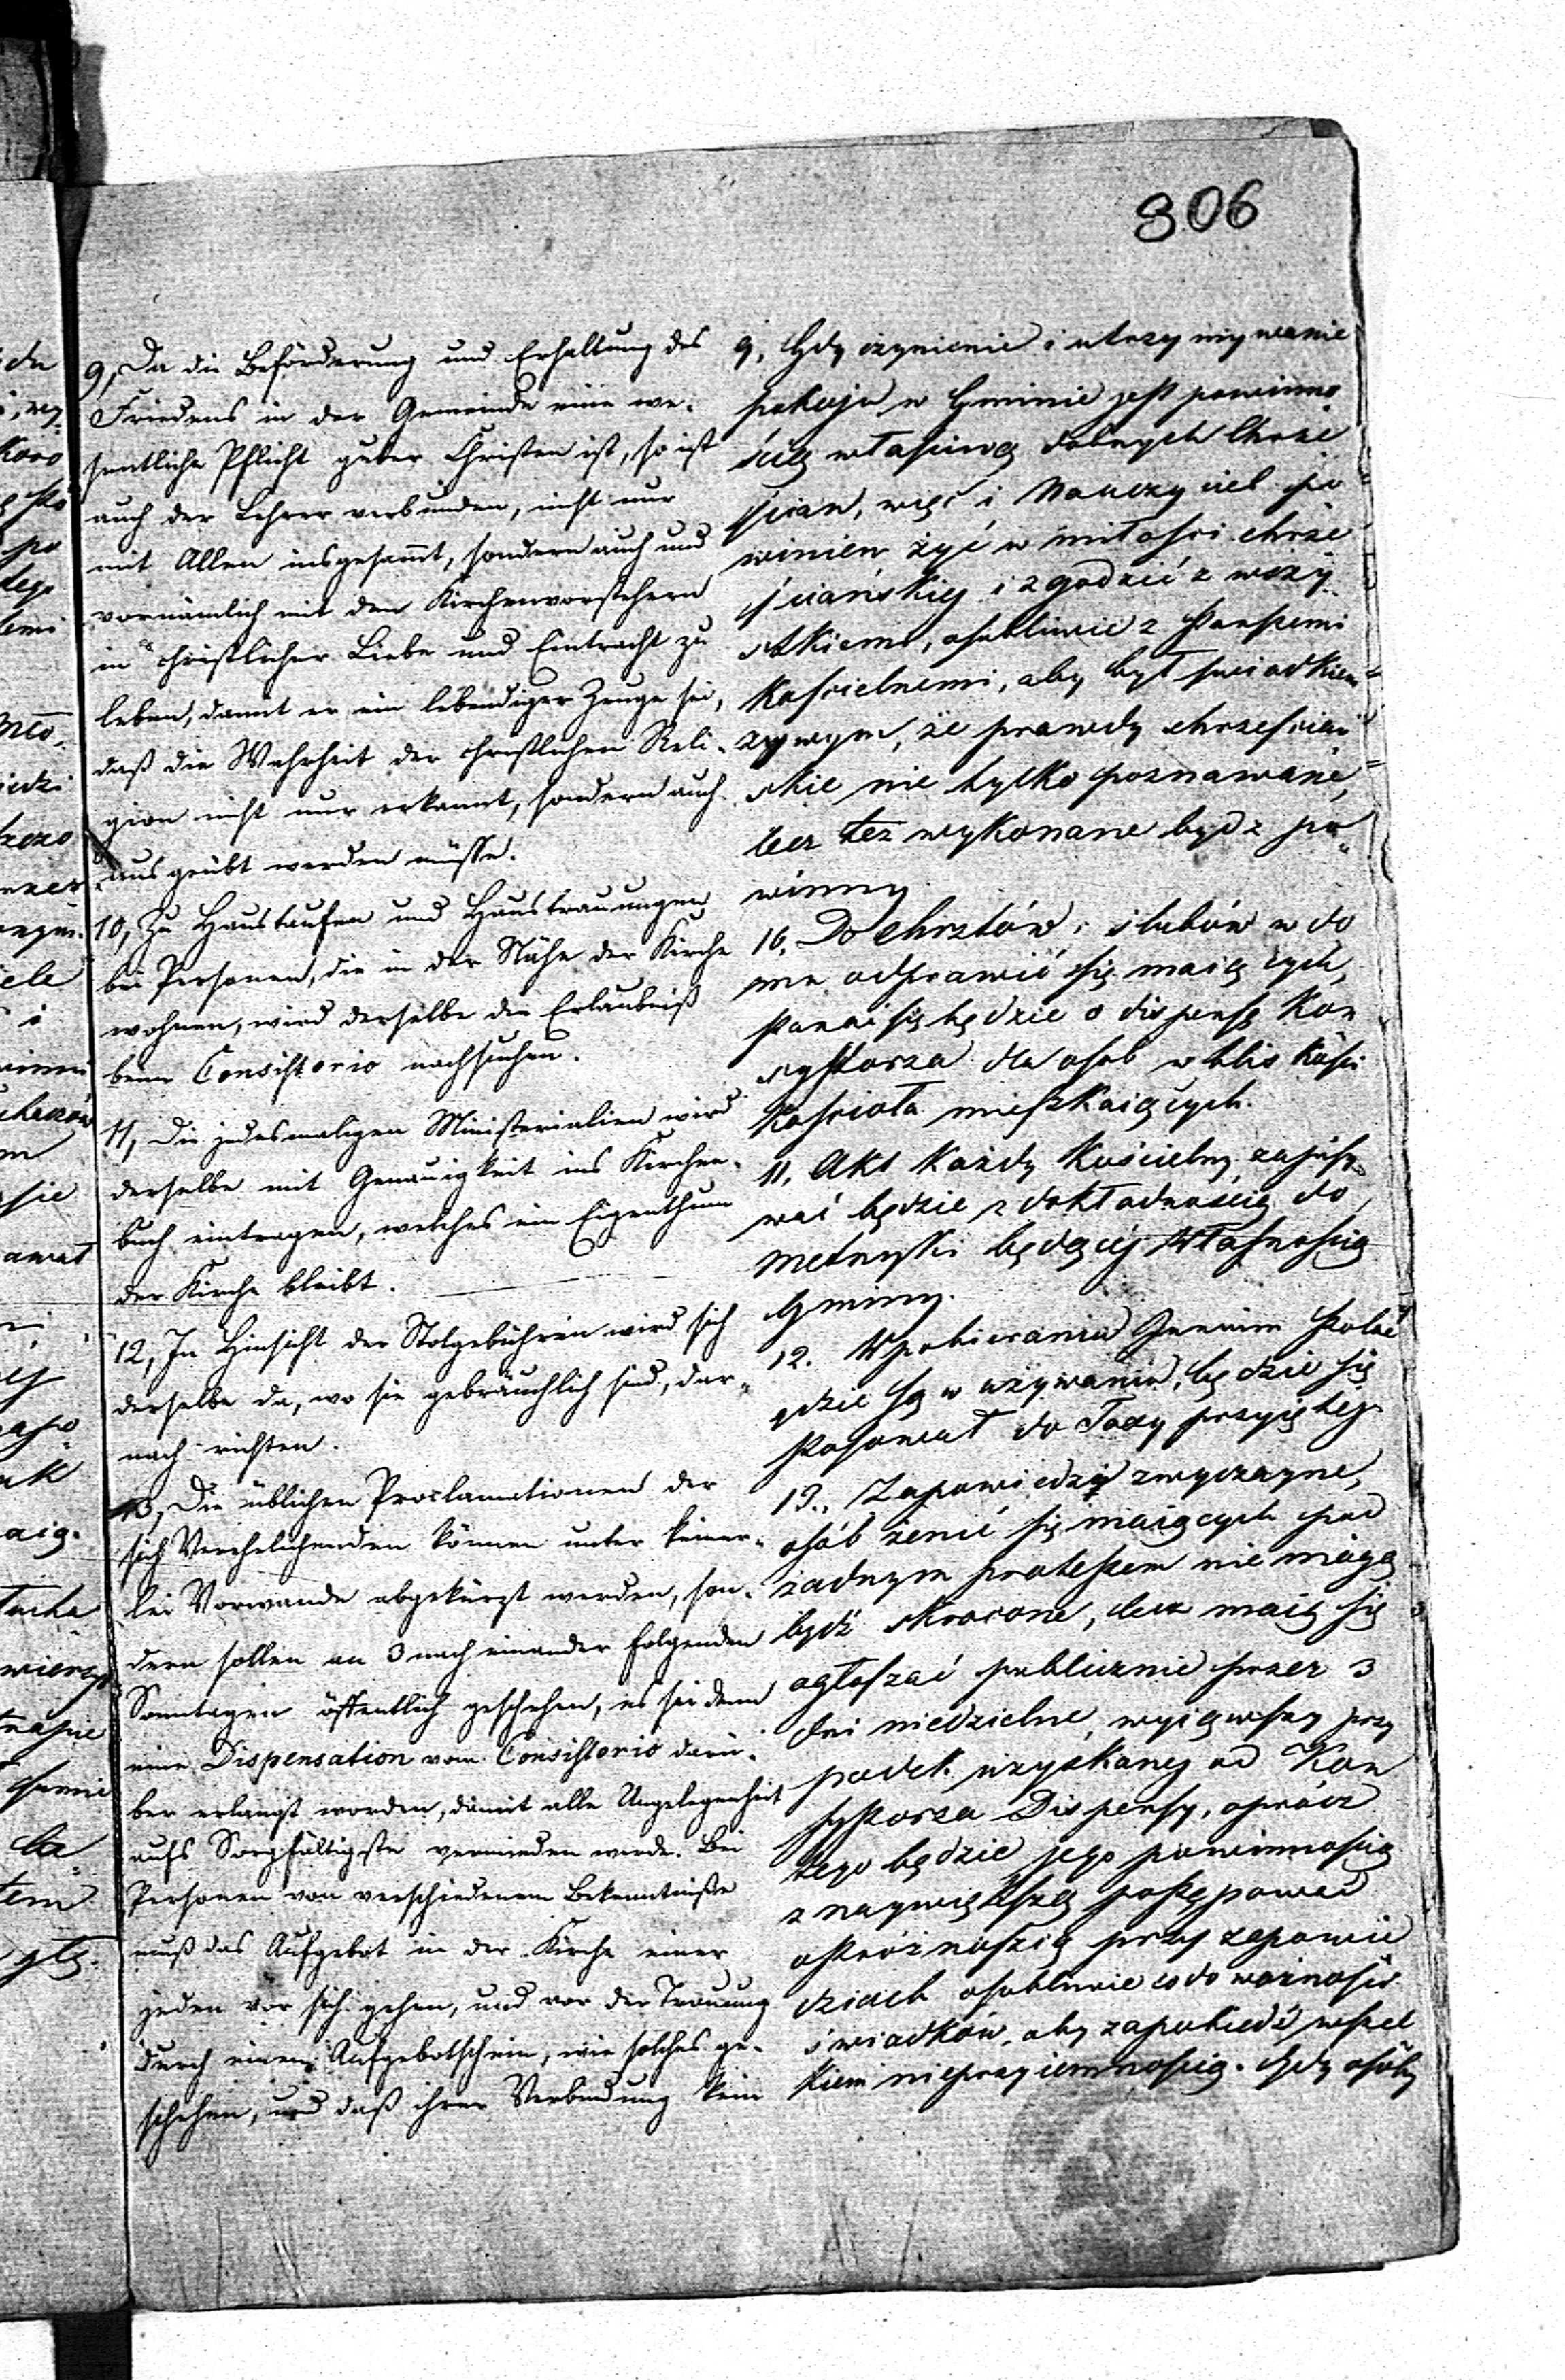 306
9, Da die Beförderung und Erhaltung des
Friedens in der Gemeinde eine we-
sentliche Pflicht guter Christen ist, so ist
auch der Lehrer verbunden, nicht nur
mit Allen insgesammt, sondern auch und
vornämlich mit den Kirchenvorstehern
in christlicher Liebe und Eintracht zu
leben, damit er ein lebendiger Zeuge sei,
daß die Wahrheit der christlichen Reli-
gion nicht nur erkannt, sondern auch
ausgeübt werden müsse.
10, Zu Haustaufen und Haustrauungen
bei Personen, die in der Nähe der Kirche
wohnen, wird derselbe die Erlaubniß
beim Consistorio nachsuchen.
11, Die jedesmaligen Ministerialien wird
derselbe mit Genauigkeit ins Kirchen-
buch eintragen, welches ein Eigenthum
der Kirche bleibt.
12, In Hinsicht der Stolgebühren wird sich
derselbe da, wo sie gebräuchlich sind, dar-
nach richten.
13, Die üblichen Proclamationen der
sich Verehelichenden können unter keiner-
lei Vorwande abgekürzt werden, son-
dern sollen an 3 nach einander folgenden
Sonntagen öffentlich geschehen, es sei denn
eine Dispensation vom Consistorio darü-
ber erlangt worden, damit alle Ungelegenheit
aufs Sorgfältigste vermieden werde. Bei
Personen von verschiedenem Bekenntniße
muß das Aufgebot in der Kirche einer
jeden vor sich gehen, und vor der Trauung
durch einen Aufgebotschein, wie solches ge-
schehen, und daß ihrer Verbindung kein
9, Gdy czynienie i utrzymywanie
pokoju w Gminie jest powinno
ścią własciwą dobrych Chrze
ścian, więc i Nauczyciel po
winien żyć w miłosci chrze
ściańskiej i zgodzić z wszy
stkiemi, osobliwie z Starszemi
Koscielnemi, aby był swiadkiem
zywym, że prawdy chrzescian
skie nie tylko poznawane,
lecz tez wykonane bydz po
winny.
10, Do chrztów i slubów w do
mu odprawić się maiących,
starac się będzie o dispensę Kon
systorza dla osob w blis kośći
Kosciola mieszkaiących.
11, Akt każdy Kościelny zapisy
wać będzie z dokładnością do
metryki będącej własnoscią
Gminy.
12. W pobieraniu Jurium Stolae
gdzie są w używaniu, będzie się
stosował do Taxy przyiętej.
13., Zapowiedzi zwyczayne,
osób żenić się maiących pod
żadnym protextem nie mogą
bydź skrocone, lecz maią się
ogłaszać publicznie przez 3
dni niedzielne, wyiąwszy przy
padek uzyskaney od Kon
systorza Dispensy, oprócz
tego będzie jego powinnoscią
z naywiększą postępować
ostróżnoscią przy zapowie
dziach osobliwie co do ważnosci
świadków, aby zapobiedź wszel
kiem nieprzyiemnoscią. Gdy osoby